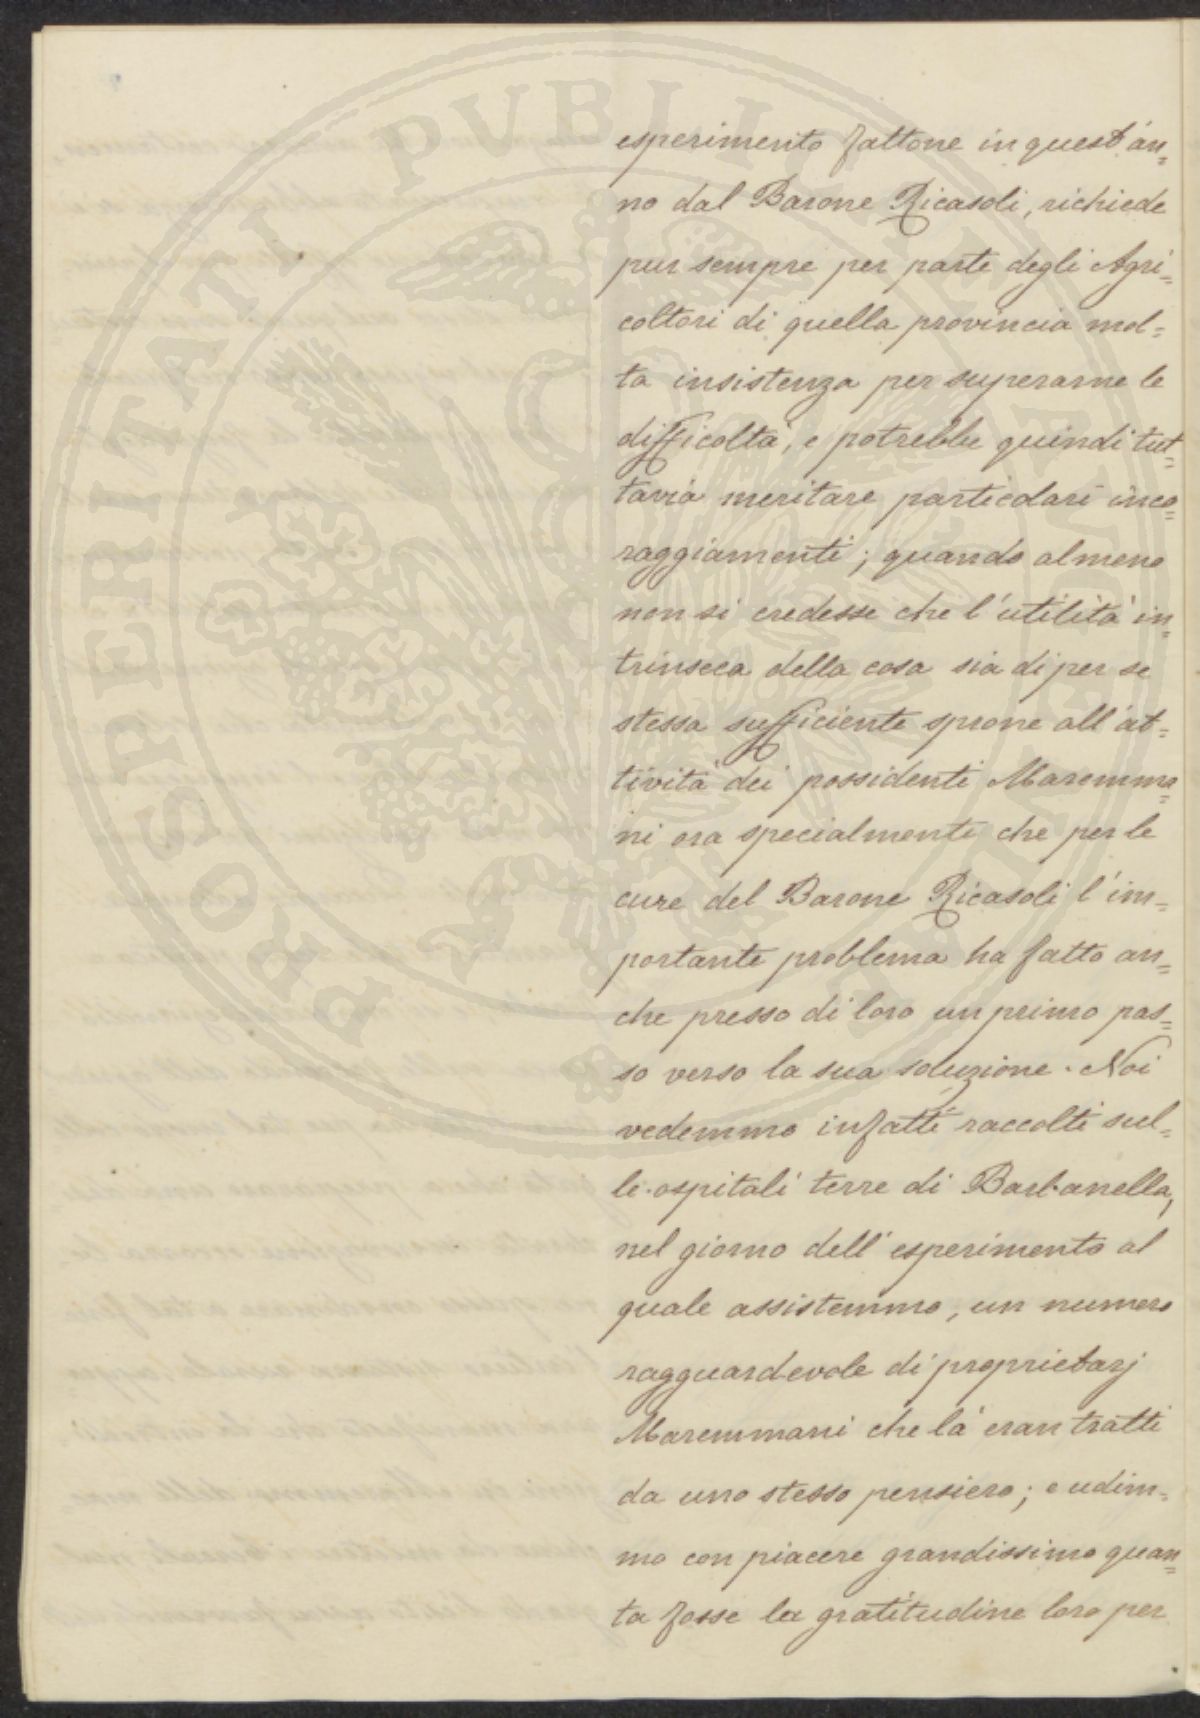 esperimento fattone in quest'an=
no dal Barone Ricasoli, richiede
pur sempre per parte degli Agri=
coltori di quella provincia mol=
ta insistenza per superarne le
difficoltà, e potrebbe quindi tut=
tavia meritare particolari inco=
raggiamenti; quando almeno
non si credesse che l'utilità in=
trinseca della cosa sia di per se
stessa sufficiente sprone all'at=
tività dei possidenti Maremma=
ni ora specialmente che per le
cure del Barone Ricasoli l'im=
portante problema ha fatto an=
che presso di loro un primo pas=
so verso la sua soluzione. Noi
vedemmo infatti raccolti sul=
le ospitali terre di Barbanella,
nel giorno dell'esperimento al
quale assistemmo, un numero
ragguardevole di proprietarj
Maremmani che là eran tratti
da uno stesso pensiero; e udim=
mo con piacere grandissimo quan=
ta fosse la gratitudine loro per
PROSPERITATI PUBLICAE